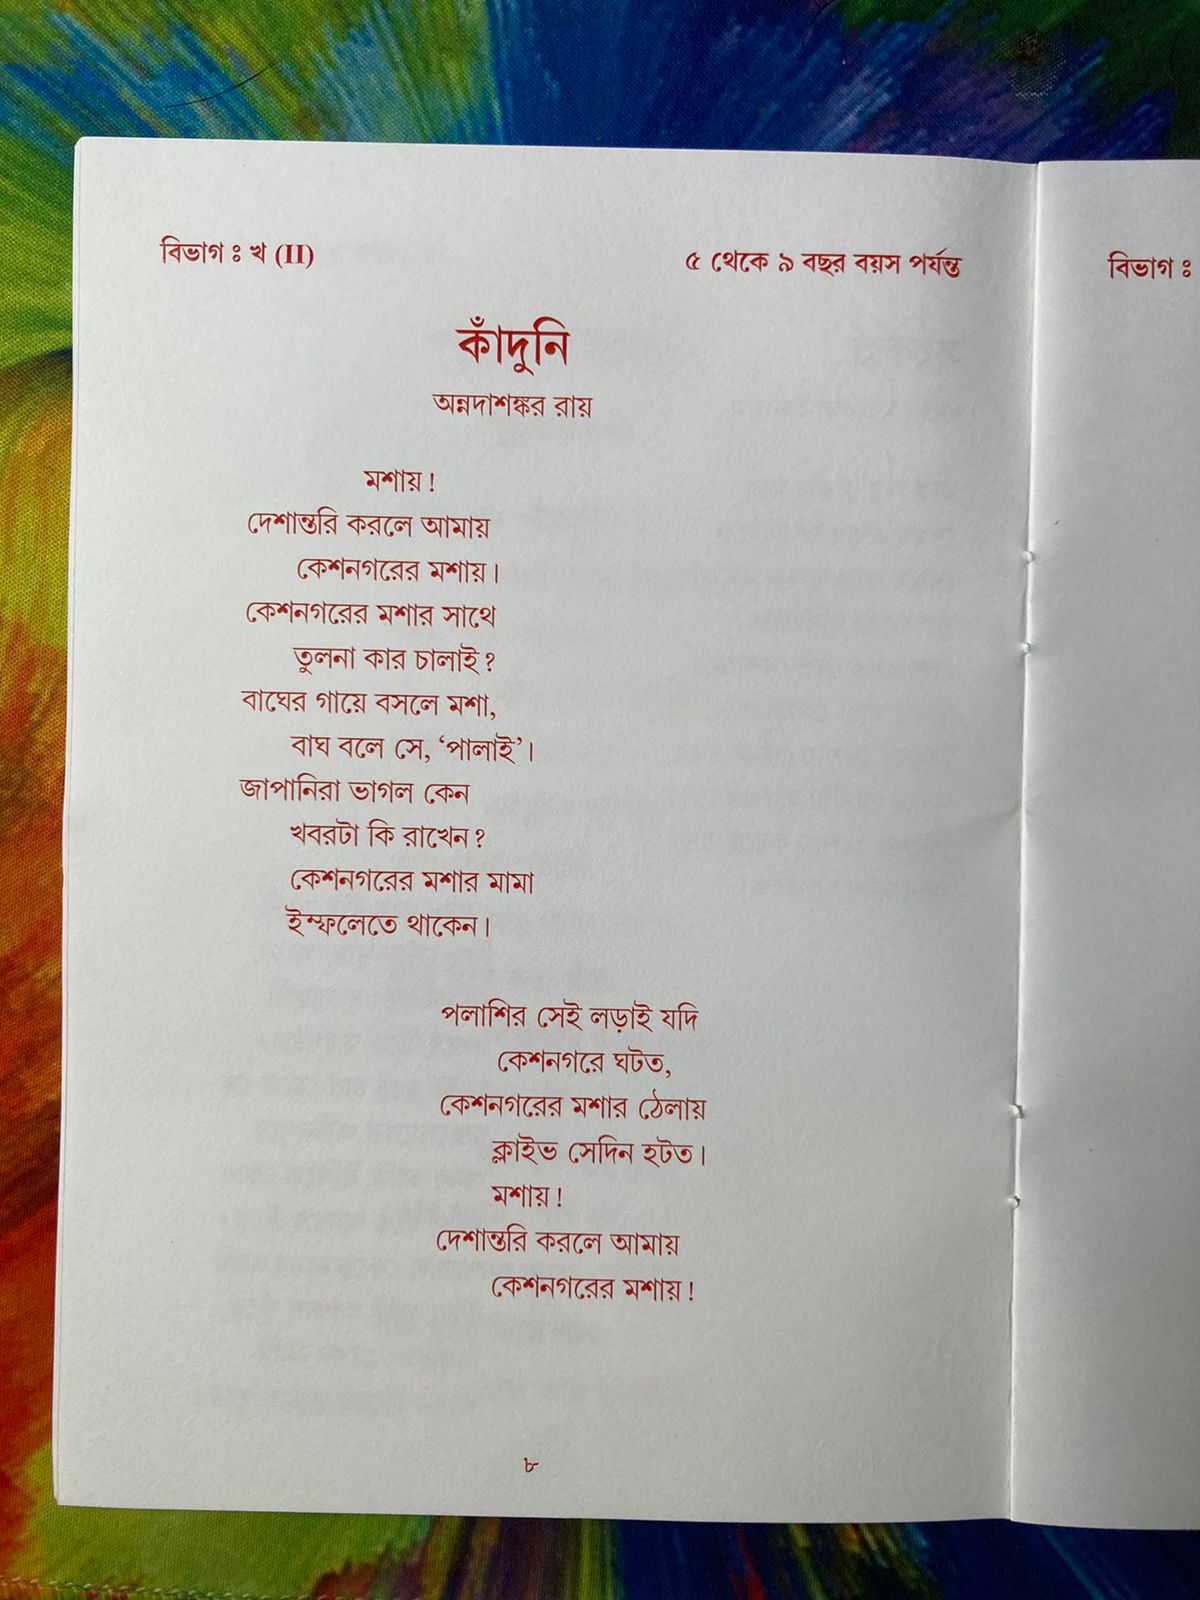 বিভাগ ঃ খ (II)
৫ থেকে ৯ বছর বয়স পর্যন্ত
কাঁদুনি
অন্নদাশঙ্কর রায়
মশায়!
দেশান্তরি করলে আমায়
কেশনগরের মশায়।
কেশনগরের মশার সাথে
তুলনা কার চালাই?
বাঘের গায়ে বসলে মশা,
বাঘ বলে সে, ‘পালাই’।
জাপানিরা ভাগল কেন
খবরটা কি রাখেন?
কেশনগরের মশার মামা
ইম্ফলেতে থাকেন।
পলাশির সেই লড়াই যদি
কেশনগরে ঘটত,
কেশনগরের মশার ঠেলায়
ক্লাইভ সেদিন হটত।
মশায়!
দেশান্তরি করলে আমায়
কেশনগরের মশায়!
৮
বিভাগ ঃ